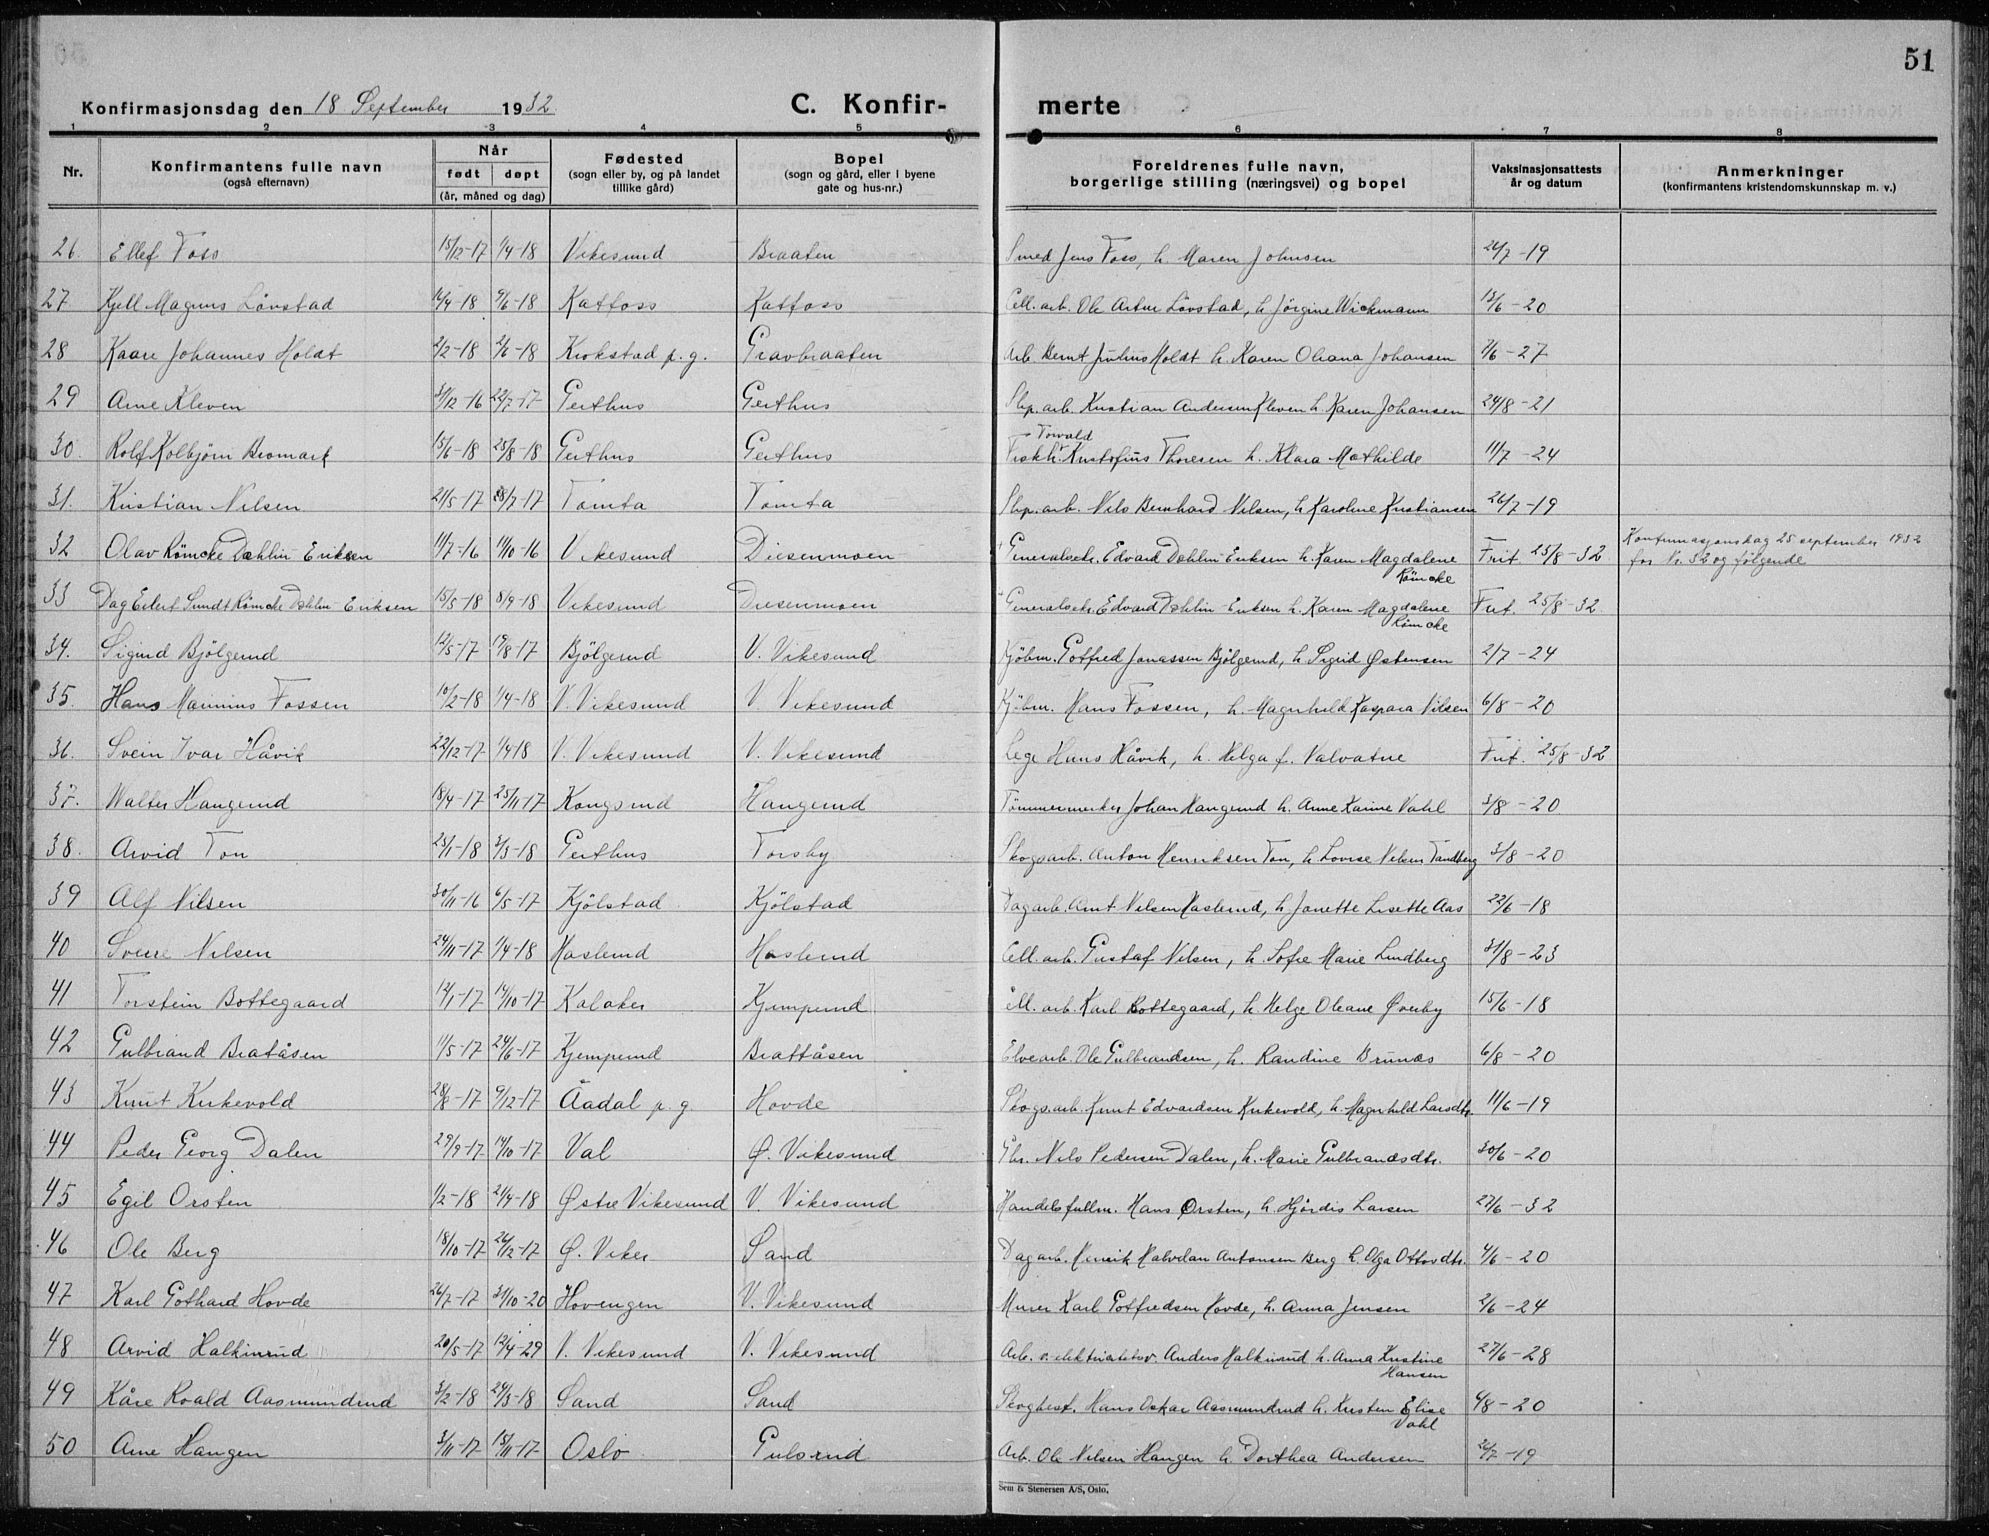 51
Konfirmasjonsdag den 18 September 1932. C. Konfir- merte
1 2 3 4 5 6 7 8
Nr. Konfirmantens fulle navn (også efternavn) Når født døpt (år, måned og dag) Fødested (sogn eller by, og på landet tillike gård) Bopel (sogn og gård, eller i byene gate og hus-nr.) Foreldrenes fulle navn, borgerlige stilling (næringsvei) og bopel Vaksinasjonsattests år og datum Anmerkninger (konfirmantens kristendomskunnskap m. v.)
26. Ellef Foss 15/12-17 1/4-18 Vikesund Braaten Smed Jens Foss, h. Maren Johnsen 24/7-19
27. Kjell Magnus Lövstad 14/4-18 9/6-18 Katfoss Katfoss Cell. arb. Ole Artur Lövstad, h. Jörgine Wickmann 13/6-20
28 Kaare Johannes Holdt 2/2-18 2/6-18 Krokstad p.g. Gravbraaten Arb. Bernt Julius Holdt h. Karen Oliana Johansen 7/6-27
29 Arne Kleven 31/12-16 22/7-17 Geithus Geithus Slip. arb. Kristian Andersen Kleven h. Karen Johansen 24/8-21
30. Rolf Kolbjörn Bromark 15/6-18 25/8-18 Geithus Geithus Fiskh. Torvald Kristofius Thoresen h. Klara Mathilde 11/7-24
31. Kristian Nilsen 21/5-17 28/7-17 Tomta Tomta Slip. arb. Nils Bernhard Nilsen, h. Karoline Kristiansen 26/7-19
32 Olav Römcke Dæhlin-Eriksen 11/7-16 11/10-16 Vikesund Diesenmoen Generalsekr. Edvard Dæhlin-Eriksen h. Karen Magdalene Römcke Frit. 25/8-32 Konfirmasjonsdag 25 september 1932 for Nr. 32 og følgende
33 Dag Eilert Sundt Römcke Dæhlin-Eriksen 15/5-18 8/9-18 Vikesund Diesenmoen Generalsekr. Edvard Dæhlin-Eriksen h. Karen Magdalene Römcke Frit. 25/8-32.
34. Sigurd Bjölgerud 12/5-17 19/8-17 Bjölgerud V. Vikesund Kjöbm. Gotfred Jonassen Bjölgerud, h. Sigrid Østensen 2/7-24
35. Hans Marinius Fossen 10/2-18 1/4-18 V. Vikesund V. Vikesund Kjöbm. Hans Fossen, h. Magnhild Kaspara Nilsen 6/8-20
36. Svein Ivar Håvik 22/12-17 1/4 18 V. Vikesund V. Vikesund Lege Hans Håvik, h. Helga f. Valvatne Frit. 25/8-32
37. Walter Haugerud 18/4-17 25/11-17 Kongsrud Haugerud Tömmermerker Johan Haugerud h. Anne Karine Vahl 3/8-20
38. Arvid Ton 25/1-18 3/3-18 Geithus Torsby Skogsarb. Anton Henriksen Ton, h. Lovise Nilsen Tandberg 3/8-20
39 Alf Nilsen 30/11-16 6/5-17 Kjölstad Kjölstad Dagarb. Arnt Nilsen Haslerud, h. Janette Lisette Aas 22/6-18
40 Sverre Nilsen 24/11-17 1/4-18 Haslerud Haslerud Cell. arb. Gustaf Nilsen, h. Sofie Marie Lindberg 31/8-23
41 Torstein Bottegaard 12/1-17 14/10-17 Kalaker Kjemperud Cell. arb. Karl Bottegaard, h. Helge Oleane Øverby 15/6-18
42 Gulbrand Bratåsen 11/5-17 24/6-17 Kjemperud Brattåsen Elvearb. Ole Gulbrandsen, h. Randine Brunæs 6/8-20
43 Knut Kirkevold 28/8-17 9/12-17 Åadal p.g. Hovde Skogs.arb. Knut Edvardsen Kirkevold, h. Magnhild Larsdtr. 11/6-19
44 Peder Georg Dalen 29/9-17 14/10-17 Val Ø. Vikesund Gbr. Nils Pedersen Dalen, h. Marie Gulbrandsdtr. 30/6-20
45 Egil Orsten 1/2-18 21/4-18 Østre Vikesund V. Vikesund Handelsfullm. Hans Orsten, h. Hjördis Larsen 27/6-32
46 Ole Berg 18/10-17 26/12-17 Ø. Viker Sand Dagarb. Henrik Halvdan Antonsen Berg h. Olga Ottosdtr. 4/6-20
47 Karl Gothard Hovde 26/7-17 31/10-20 Hovengen V. Vikesund Murer Karl Gotfredsen Hovde, h. Anna Jensen 2/6-24
48 Arvid Halkinrud 20/5-17 12/4-29 V. Vikesund V. Vikesund Arb. v. elektrisitetsv. Anders Halkinrud h. Anna Kristine Hansen 27/6-28
49 Kåre Roald Aasmundrud 3/2-18 24/3-18 Sand Sand Skogbest. Hans Oskar Aasmundrud h. Kirsten Elise Vahl 4/8-20
50 Arne Haugen 3/11-17 18/11-17 Oslo Gulsrud Arb. Ole Nilsen Haugen h. Dorthea Andersen 24/7-19
Sem & Stenersen A/S, Oslo.